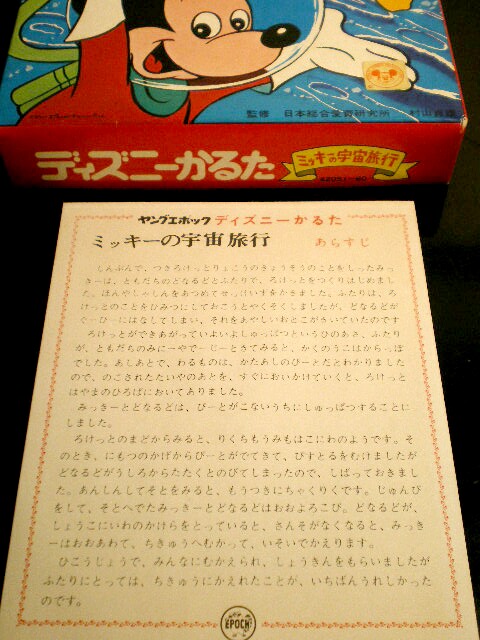 監修 日本総合愛育研究所
ディズニーかるた
ミッキーの宇宙旅行
ヤングエポック ディズニーかるた
ミッキーの宇宙旅行 あらすじ
しんぶんで、つきろけっとりょこうのきょうそうのことをしったみっ
きーは、ともだちのどなるどとふたりで、ろけっとをつくりはじめまし
た。ほんやしゃしんをあつめてせっけいずをかきました。ふたりは、ろ
けっとのことをひみつにしておこうとやくそくしましたが、どなるどが
ぐーひーにはなしてしまい、それをあやしいおとこがきいていたのです
ろけっとができあがっていよいよしゅっぱつというひのあさ、ふたり
が、ともだちのみにーやでーじーときてみると、かくのうこはからっぽ
でした。あしあとで、わるものは、かたあしのぴーとだとわかりました
ので、のこされたたいやのあとを、すぐにおいかけていくと、ろけっと
はやまのひろばにおいてありました。
みっきーとどなるどは、ぴーとがこないうちにしゅっぱつすることに
しました。
ろけっとのまどからみると、りくちもうみもはこにわのようです。そ
のとき、にもつのかげからぴーとがでてきて、ぴすとるをむけましたが
どなるどがうしろからたたくとのびてしまったので、しばっておきまし
た。あんしんしてそとをみると、もうつきにちゃくりくです。じゅんび
をして、そとへでたみっきーとどなるどはおおよろこび。どなるどが、
しょうこにいわのかけらをとっていると、さんそがなくなると、みっき
ーはおおあわて、ちきゅうへむかって、いそいでかえります。
ひこうじょうで、みんなにむかえられ、しょうきんをもらいましたが
ふたりにとっては、ちきゅうにかえれたことが、いちばんうれしかった
のです。
EPOCH